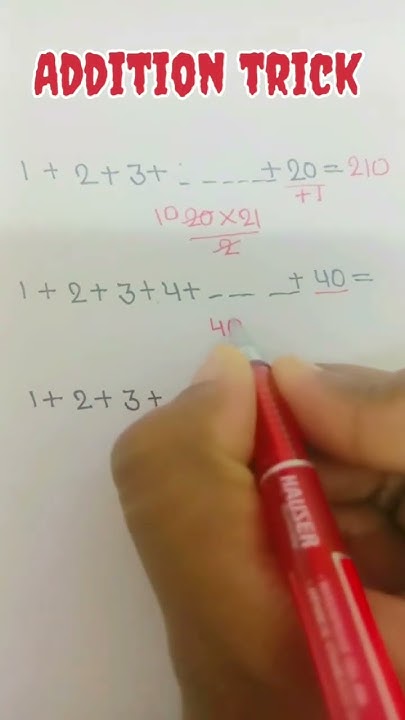 ADDITION TRICK
1 + 2 + 3 + - - - - - + 20 = 210
+1
10 20 × 21
2
1 + 2 + 3 + 4 + - - - - + 40 =
40
1 + 2 + 3 +
HAUSER